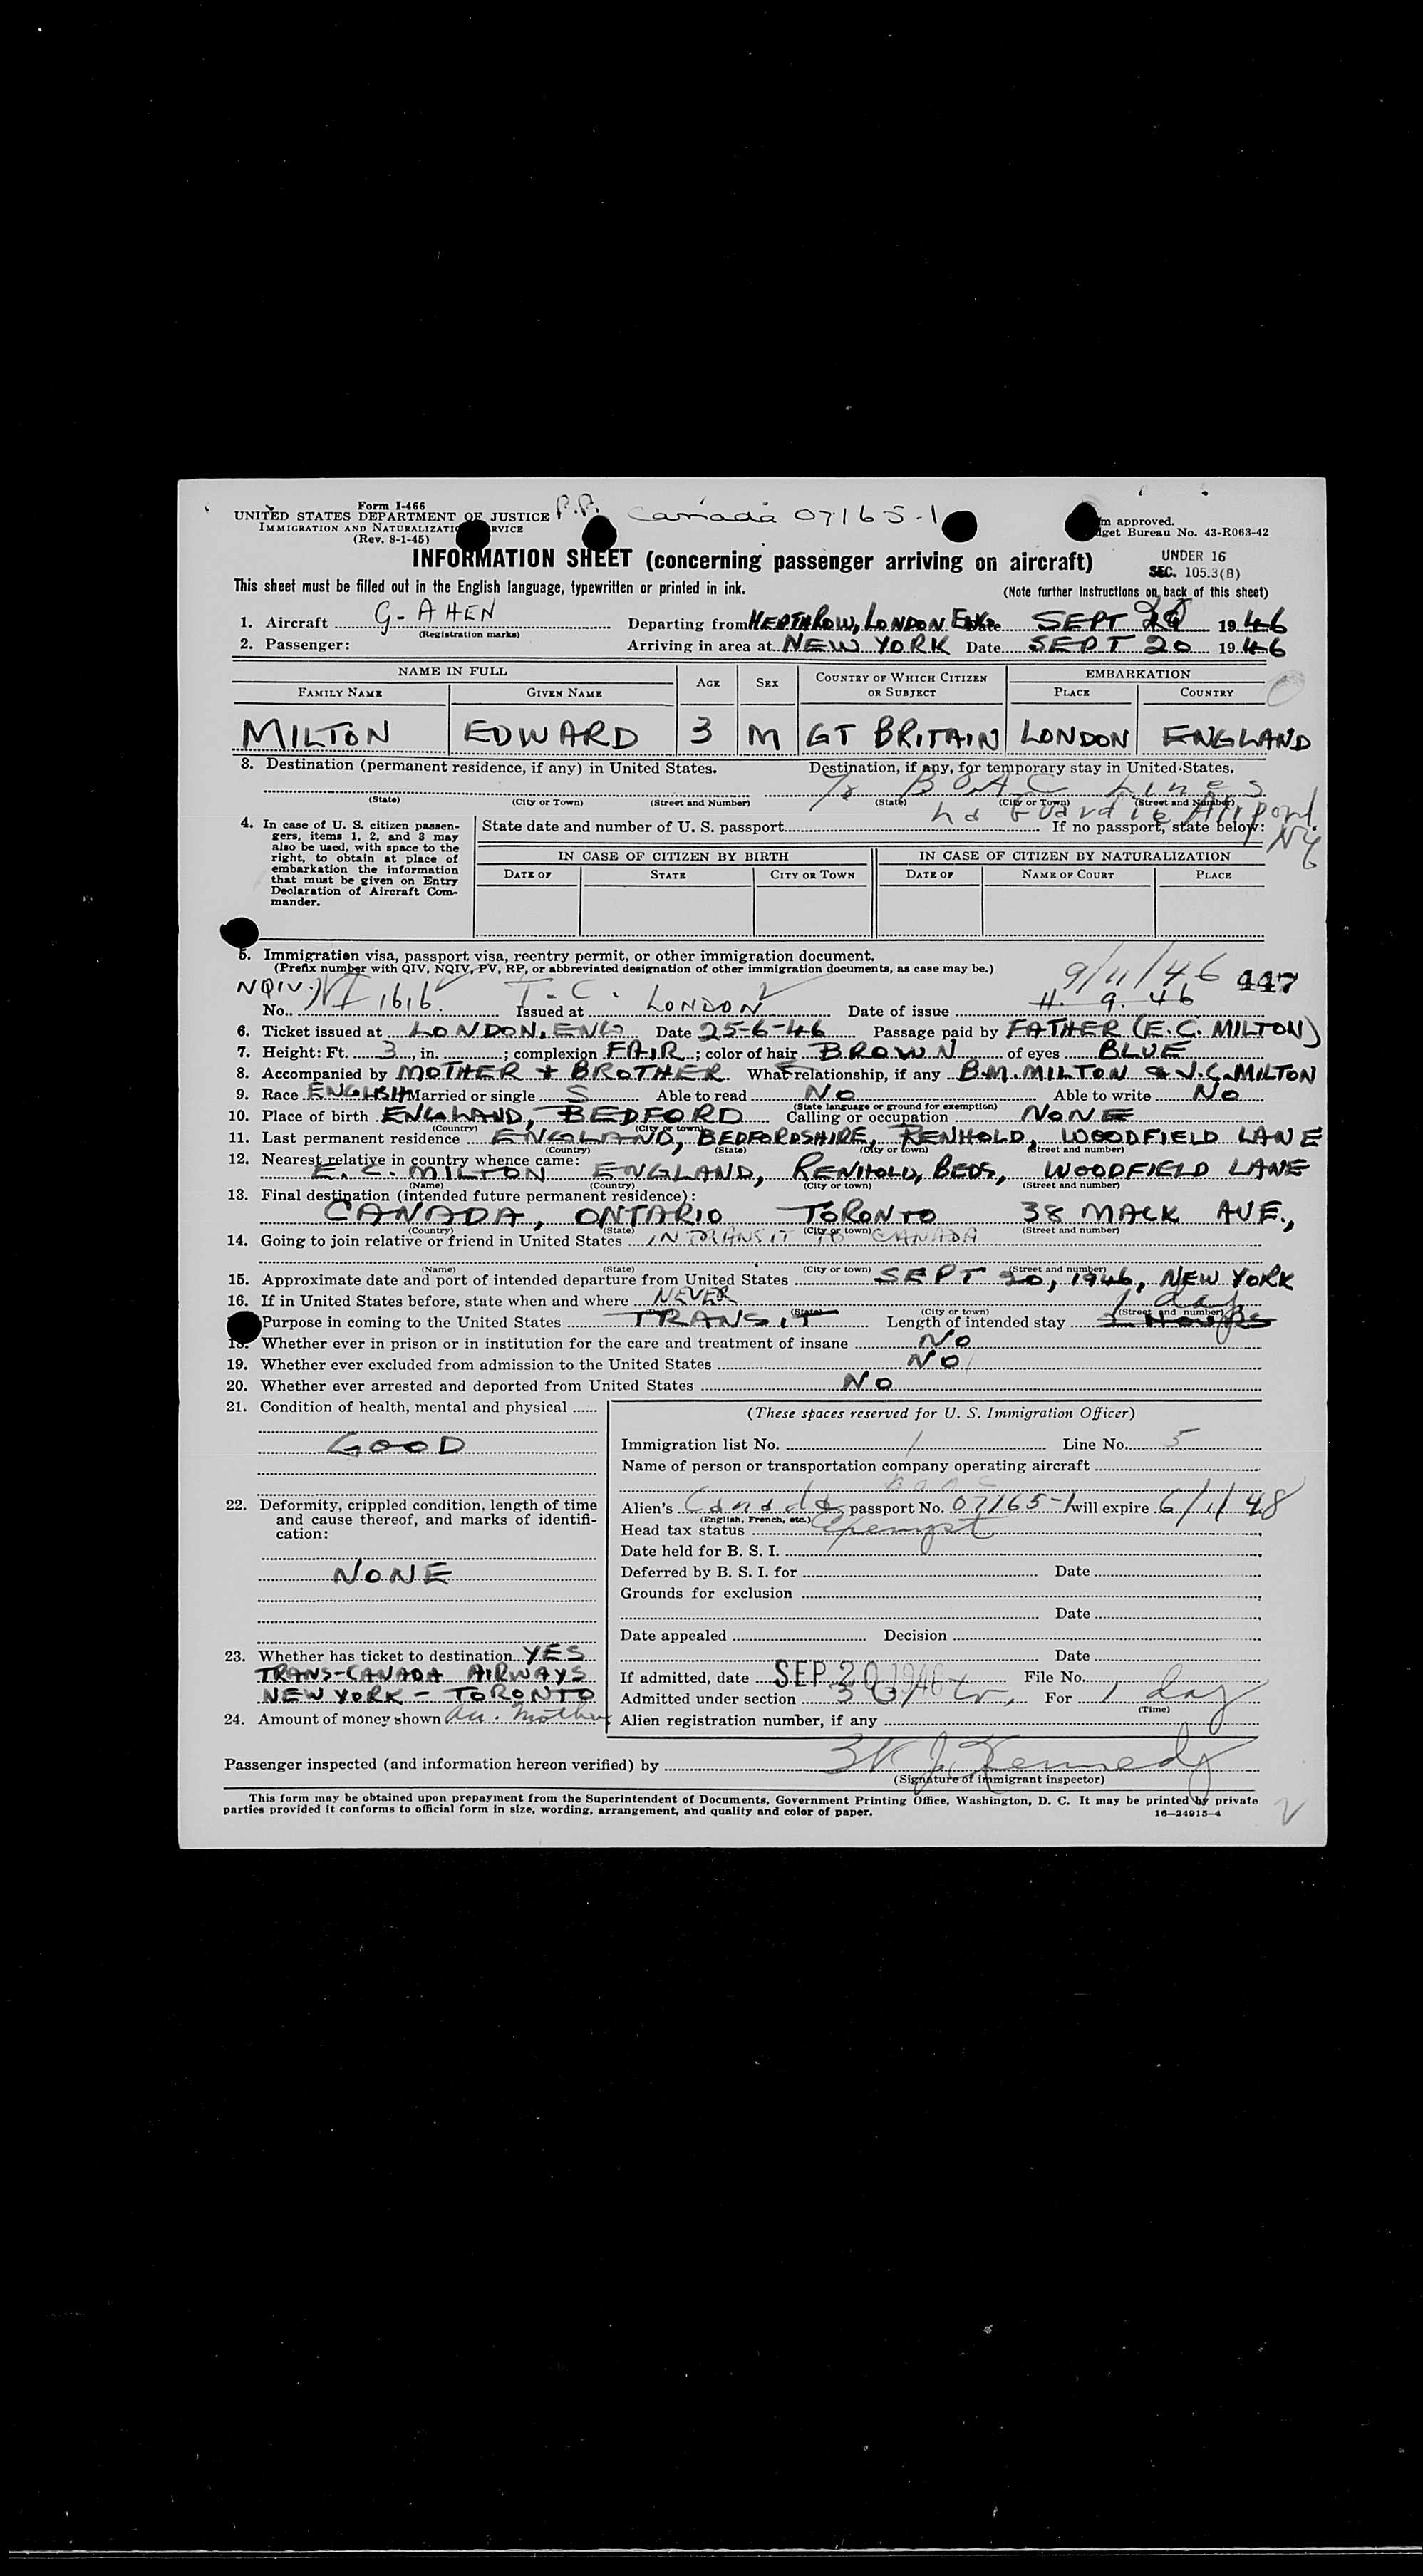 Form I-466
UNITED STATES DEPARTMENT OF JUSTICE P.P. Canada 07165-1
IMMIGRATION AND NATURALIZATION SERVICE
(Rev. 8-1-45)
approved.
Bureau No. 43-R063-42
INFORMATION SHEET (concerning passenger arriving on aircraft)
UNDER 16
SEC. 105.3(B)
This sheet must be filled out in the English language, typewritten or printed in ink. (Note further instructions on back of this sheet)
1. Aircraft G-AHEN Departing from HEATHROW, LONDON Date SEPT 1946
(Registration marks)
2. Passenger: Arriving in area at NEW YORK Date SEPT 20 1946
NAME IN FULL AGE SEX COUNTRY OF WHICH CITIZEN OR SUBJECT EMBARKATION
FAMILY NAME GIVEN NAME PLACE COUNTRY
MILTON EDWARD 3 M GT BRITAIN LONDON ENGLAND
3. Destination (permanent residence, if any) in United States. Destination, if any, for temporary stay in United States.
% B.O.A.C Lines
(State) (City or Town) (Street and Number) (State) (City or Town) (Street and Number)
La Guardia Airport NY
4. In case of U. S. citizen passengers, items 1, 2, and 3 may also be used, with space to the right, to obtain at place of embarkation the information that must be given on Entry Declaration of Aircraft Commander.
State date and number of U. S. passport If no passport, state below:
IN CASE OF CITIZEN BY BIRTH IN CASE OF CITIZEN BY NATURALIZATION
DATE OF STATE CITY OR TOWN DATE OF NAME OF COURT PLACE
5. Immigration visa, passport visa, reentry permit, or other immigration document.
(Prefix number with QIV, NQIV, PV, RP, or abbreviated designation of other immigration documents, as case may be.)
9/11/46 447
NQIV
No. 1616 Issued at T.C. LONDON Date of issue 11. 9. 46
6. Ticket issued at LONDON, ENG Date 25-6-46 Passage paid by FATHER (E.C. MILTON)
7. Height: Ft. 3, in. ; complexion FAIR; color of hair BROWN of eyes BLUE
8. Accompanied by MOTHER + BROTHER What relationship, if any B.M. MILTON & J.C. MILTON
9. Race ENGLISH Married or single S Able to read NO Able to write NO
(State language or ground for exemption)
10. Place of birth ENGLAND, BEDFORD Calling or occupation NONE
(Country) (City or town)
11. Last permanent residence ENGLAND, BEDFORDSHIRE, RENHOLD, WOODFIELD LANE
(Country) (State) (City or town) (Street and number)
12. Nearest relative in country whence came:
E. C. MILTON ENGLAND, RENHOLD, BEDS, WOODFIELD LANE
(Name) (Country) (City or town) (Street and number)
13. Final destination (intended future permanent residence):
CANADA, ONTARIO TORONTO 38 MACK AVE.,
(Country) (State) (City or town) (Street and number)
14. Going to join relative or friend in United States IN TRANSIT TO CANADA
(Name) (State) (City or town) (Street and number)
15. Approximate date and port of intended departure from United States SEPT 20, 1946, NEW YORK
16. If in United States before, state when and where NEVER
(State) (City or town) (Street and number)
Purpose in coming to the United States TRANSIT Length of intended stay 1 day
18. Whether ever in prison or in institution for the care and treatment of insane NO
19. Whether ever excluded from admission to the United States NO
20. Whether ever arrested and deported from United States NO
21. Condition of health, mental and physical
GOOD
22. Deformity, crippled condition, length of time and cause thereof, and marks of identification:
NONE
23. Whether has ticket to destination YES
TRANS-CANADA AIRWAYS
NEW YORK - TORONTO
24. Amount of money shown Mother
(These spaces reserved for U. S. Immigration Officer)
Immigration list No. 1 Line No. 5
Name of person or transportation company operating aircraft
BOAC
Alien's Canada passport No. 07165-1 will expire 6/1/48
(English, French, etc.)
Head tax status Exempt
Date held for B. S. I.
Deferred by B. S. I. for Date
Grounds for exclusion
Date
Date appealed Decision
Date
If admitted, date SEP 20 1946 File No.
Admitted under section 3(3) tr, For 1 day
(Time)
Alien registration number, if any
Passenger inspected (and information hereon verified) by J. Kennedy
(Signature of immigrant inspector)
This form may be obtained upon prepayment from the Superintendent of Documents, Government Printing Office, Washington, D. C. It may be printed by private
parties provided it conforms to official form in size, wording, arrangement, and quality and color of paper. 16—24915-4